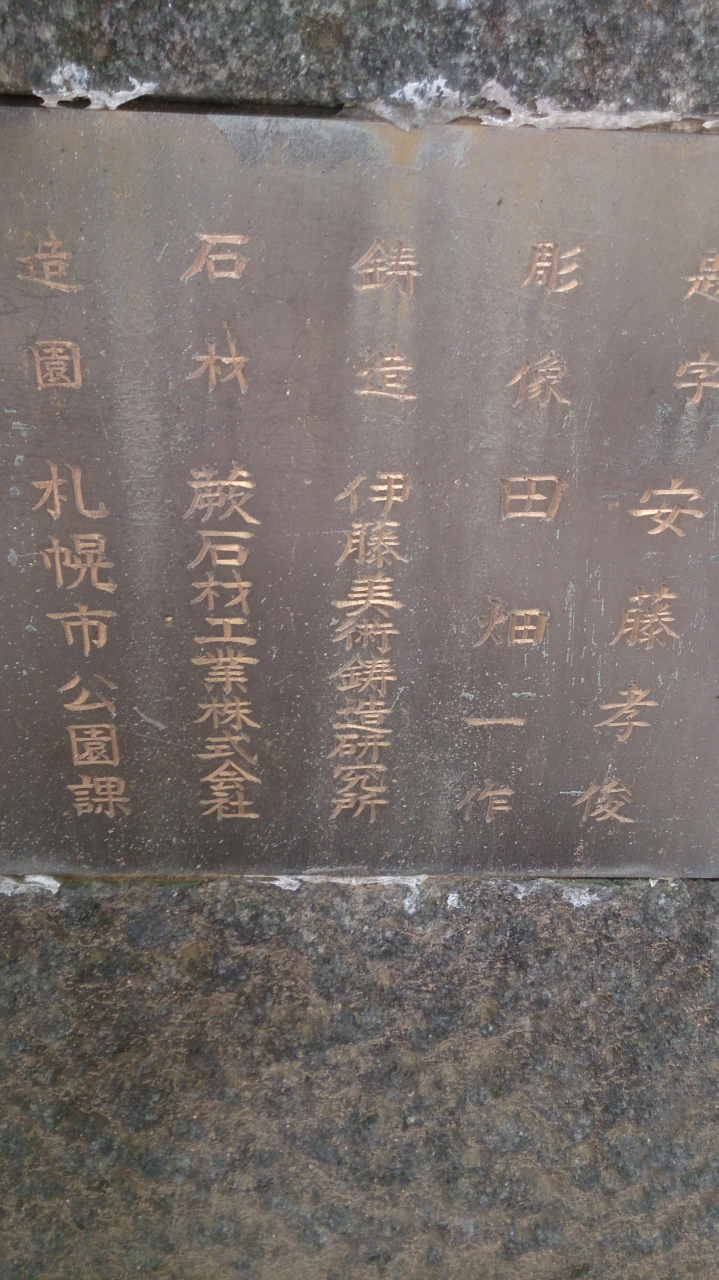 題字 安藤孝俊
彫像 田畑一作
鋳造 伊藤美術鋳造研究所
石材 蕨石材工業株式会社
造園 札幌市公園課